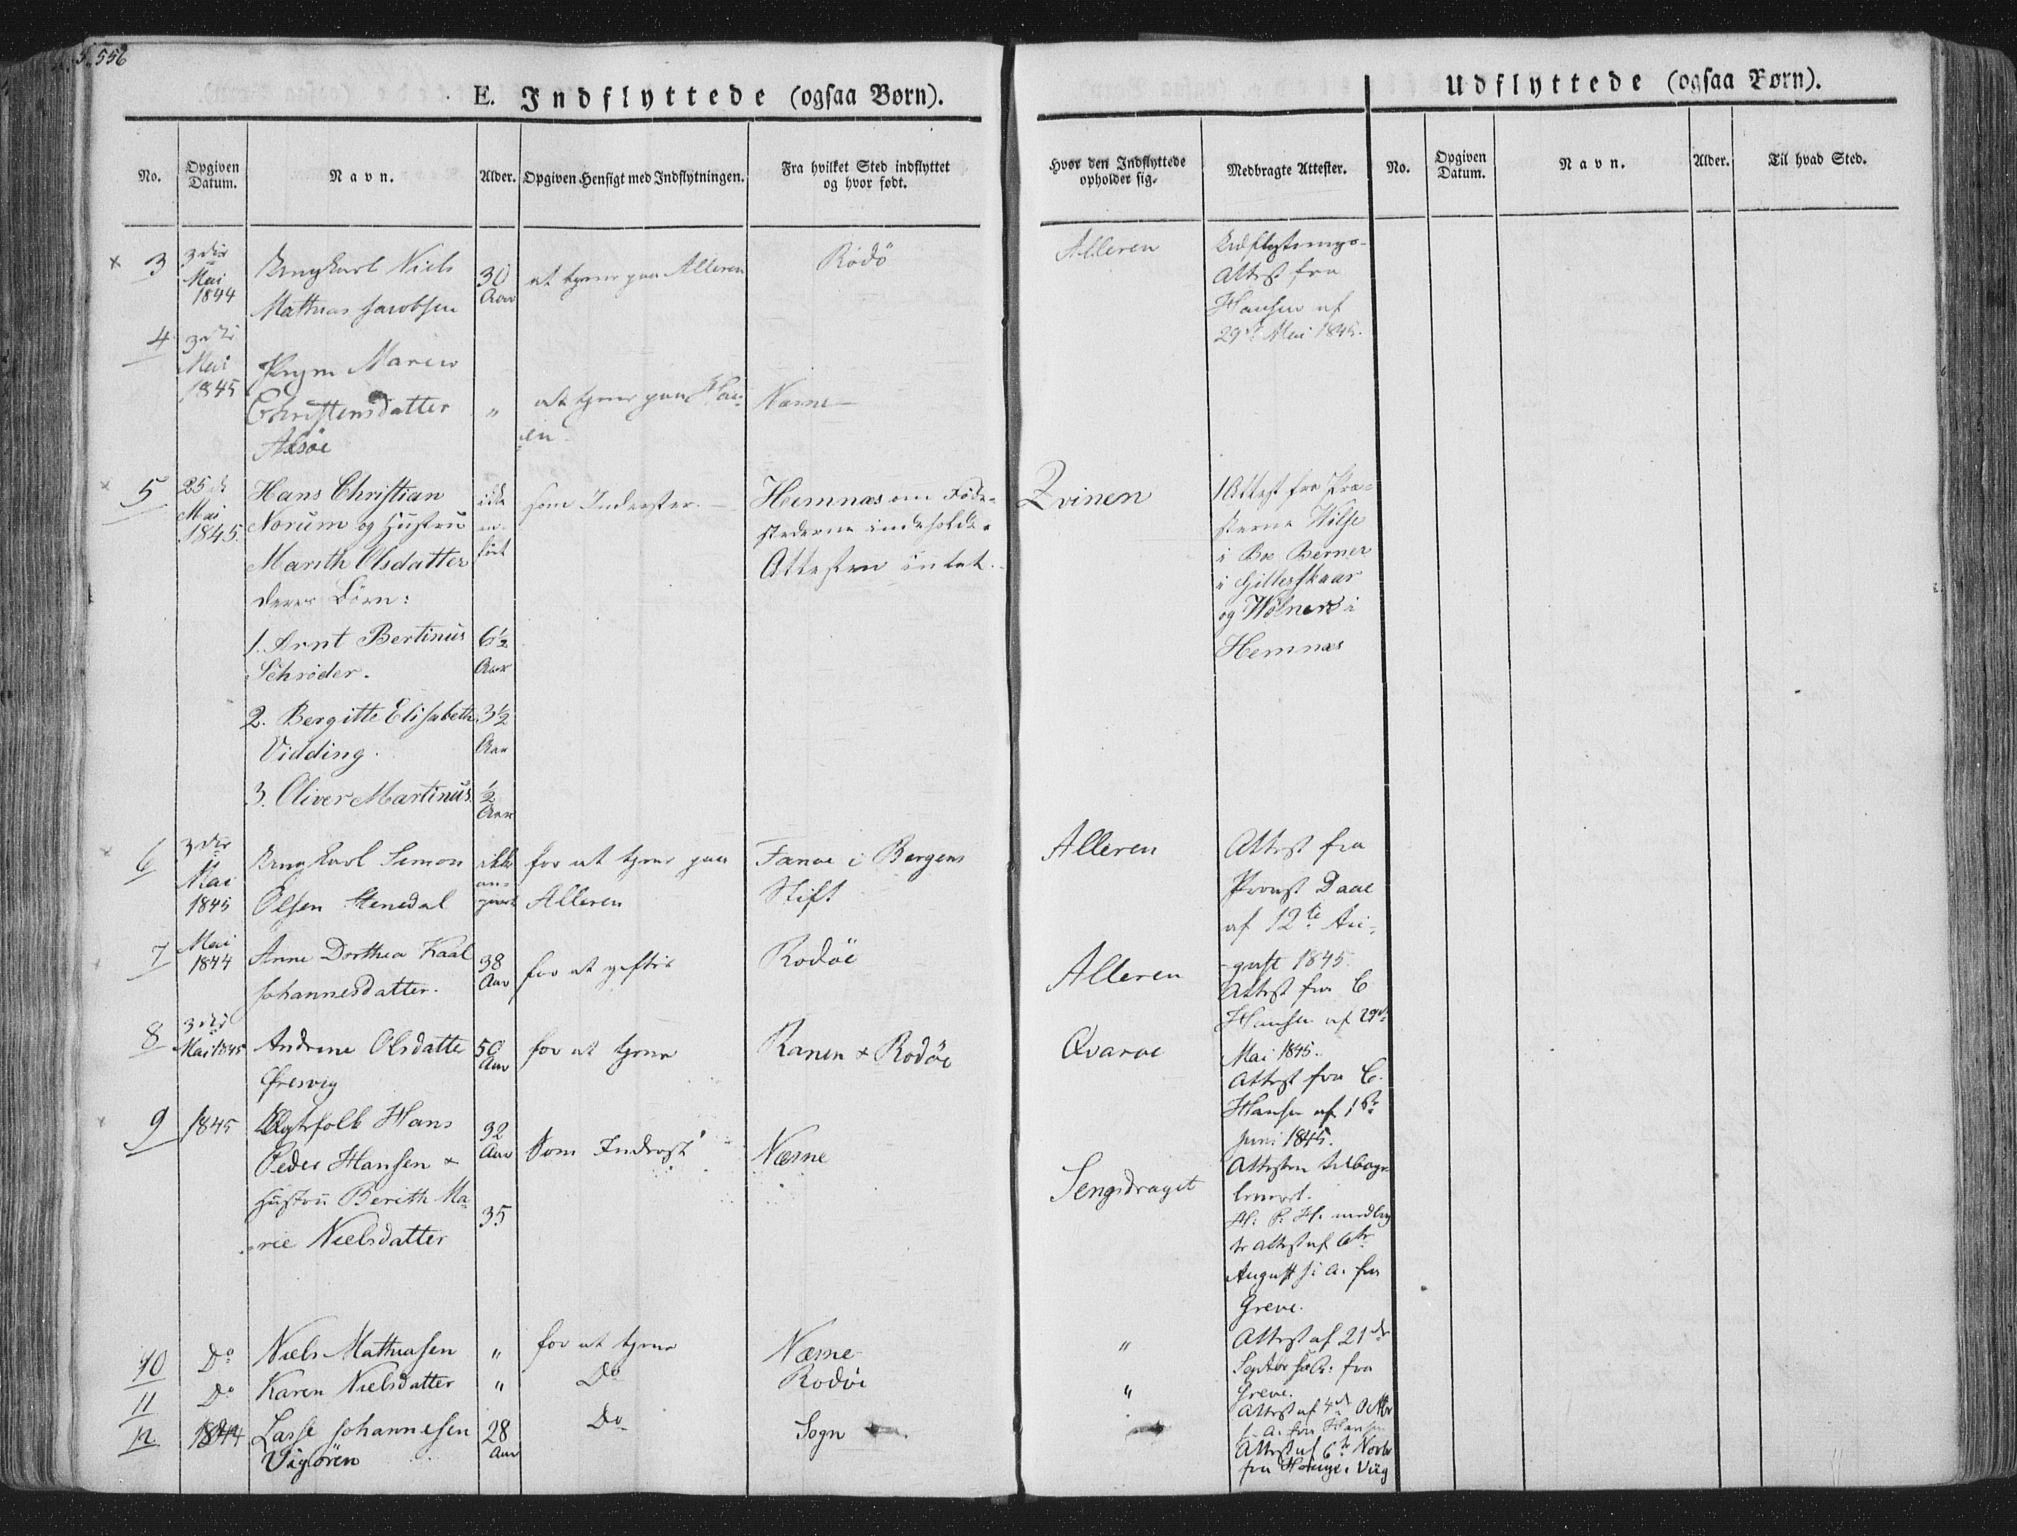 S. 556
E. Indflyttede (ogsaa Børn).
Udflyttede (ogsaa Børn).
No.
Opgiven Datum.
Navn.
Alder.
Opgiven Hensigt med Indflytningen.
Fra hvilket Sted indflyttet og hvor født.
Hvor den Indflyttede opholder sig.
Medbragte Attester.
No.
Opgiven Datum.
Navn.
Alder.
Til hvad Sted.
3
3die
Mai
1844
Ungkarl Niels
Mathias Jacobsen
30
Aar
at tjene paa Alleren
Rödö
Alleren
Udflytnings-
Attest fra
Hansen af
29de Mai 1845.
4
3die
Mai
1845
Pige Maren
Christensdatter
"
at tjene paa
Næsne
5
25de
Mai
1845.
Hans Christian
Norum og Hustru
Marith Olsdatter
deres Börn:
1. Arnt Bertinus
Schröder.
2. Bergitte Elisabeth
Vidding.
3. Oliver Martinus
ikke
6½
Aar
3½
Aar
½
Aar
som Inderster.
Hemnæs om Föde-
stederne indeholde
Attesten intet.
Zvinen
Attest fra Præ-
sterne Wilse
i Boe Berner
i Gilleskaar
og i
Hemnæs
6
3die
Mai
1845
Ungkarl Simon
Olsen Stenedal
ikke
for at tjene paa
Alleren
Fanøe i Bergens
Stift
Alleren
Attest fra
Provst Daae
af 12te Au-
gust 1845.
7
Mai
1844
Anne Dorthea Kaal
Johannesdatter.
38
Aar
for at giftes
Rodöe
Alleren
Attest fra C
Hansen af 29de
Mai 1845.
8
3die
Mai 1845
Andrine Olsdatter
Öresvig
50
Aar
for at tjene
Ranen & Rodöe
Qvaröe
Attest fra C.
Hansen af 1ste
Juni 1845.
9
1845
Ægtefolk Hans
Peder Hansen &
Hustru Berith Ma-
rie Nielsdatter
32
Aar
35
Som Inderst
Næsne
Sengsdraget
Attesten tilbage
leveret.
H. P. H. medbrag
te Attest af 6te
August s. A. fra
Greve.
10
Do
Niels Mathiasen
"
for at tjene
Næsne
"
Attest af 21de
Septbr s. A. fra
Greve.
11
Do
Karen Nielsdatter
"
Do
Rodöe
"
Attest af 4de Octbr
s. A. fra Hansen
12
1844
Lasse Johannesen
Vigören
28
Aar
Do
Sogn
Attest af 6te Novbr
fra Hauge i Viig